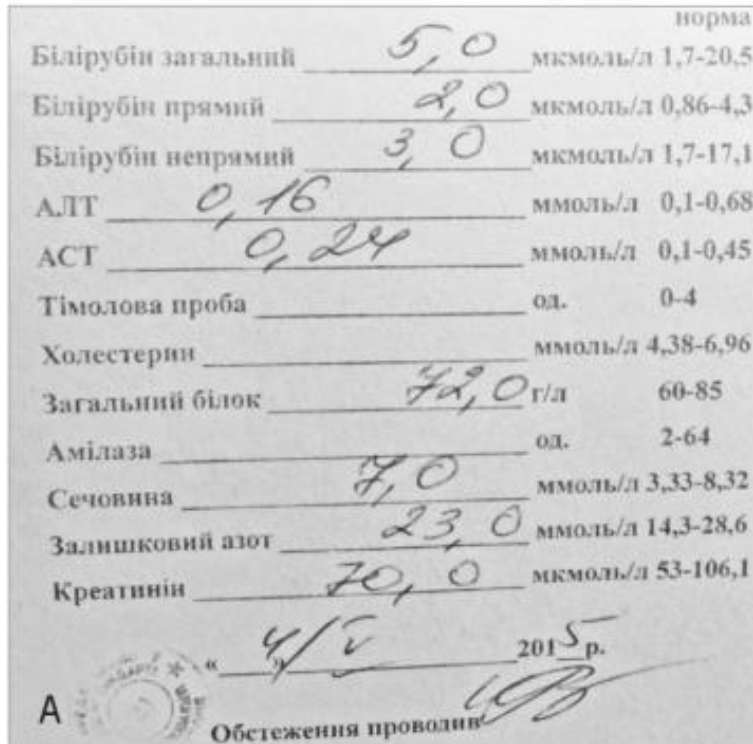 норма
Білірубін загальний 5,0 мкмоль/л 1,7-20,5
Білірубін прямий 2,0 мкмоль/л 0,86-4,3
Білірубін непрямий 3,0 мкмоль/л 1,7-17,1
АЛТ 0,16 ммоль/л 0,1-0,68
АСТ 0,24 ммоль/л 0,1-0,45
Тімолова проба од. 0-4
Холестерин ммоль/л 4,38-6,96
Загальний білок 72,0 г/л 60-85
Амілаза од. 2-64
Сечовина 7,0 ммоль/л 3,33-8,32
Залишковий азот 23,0 ммоль/л 14,3-28,6
Креатинін 70,0 мкмоль/л 53-106,1
« 4/V » 2015 р.
А
Обстеження проводив